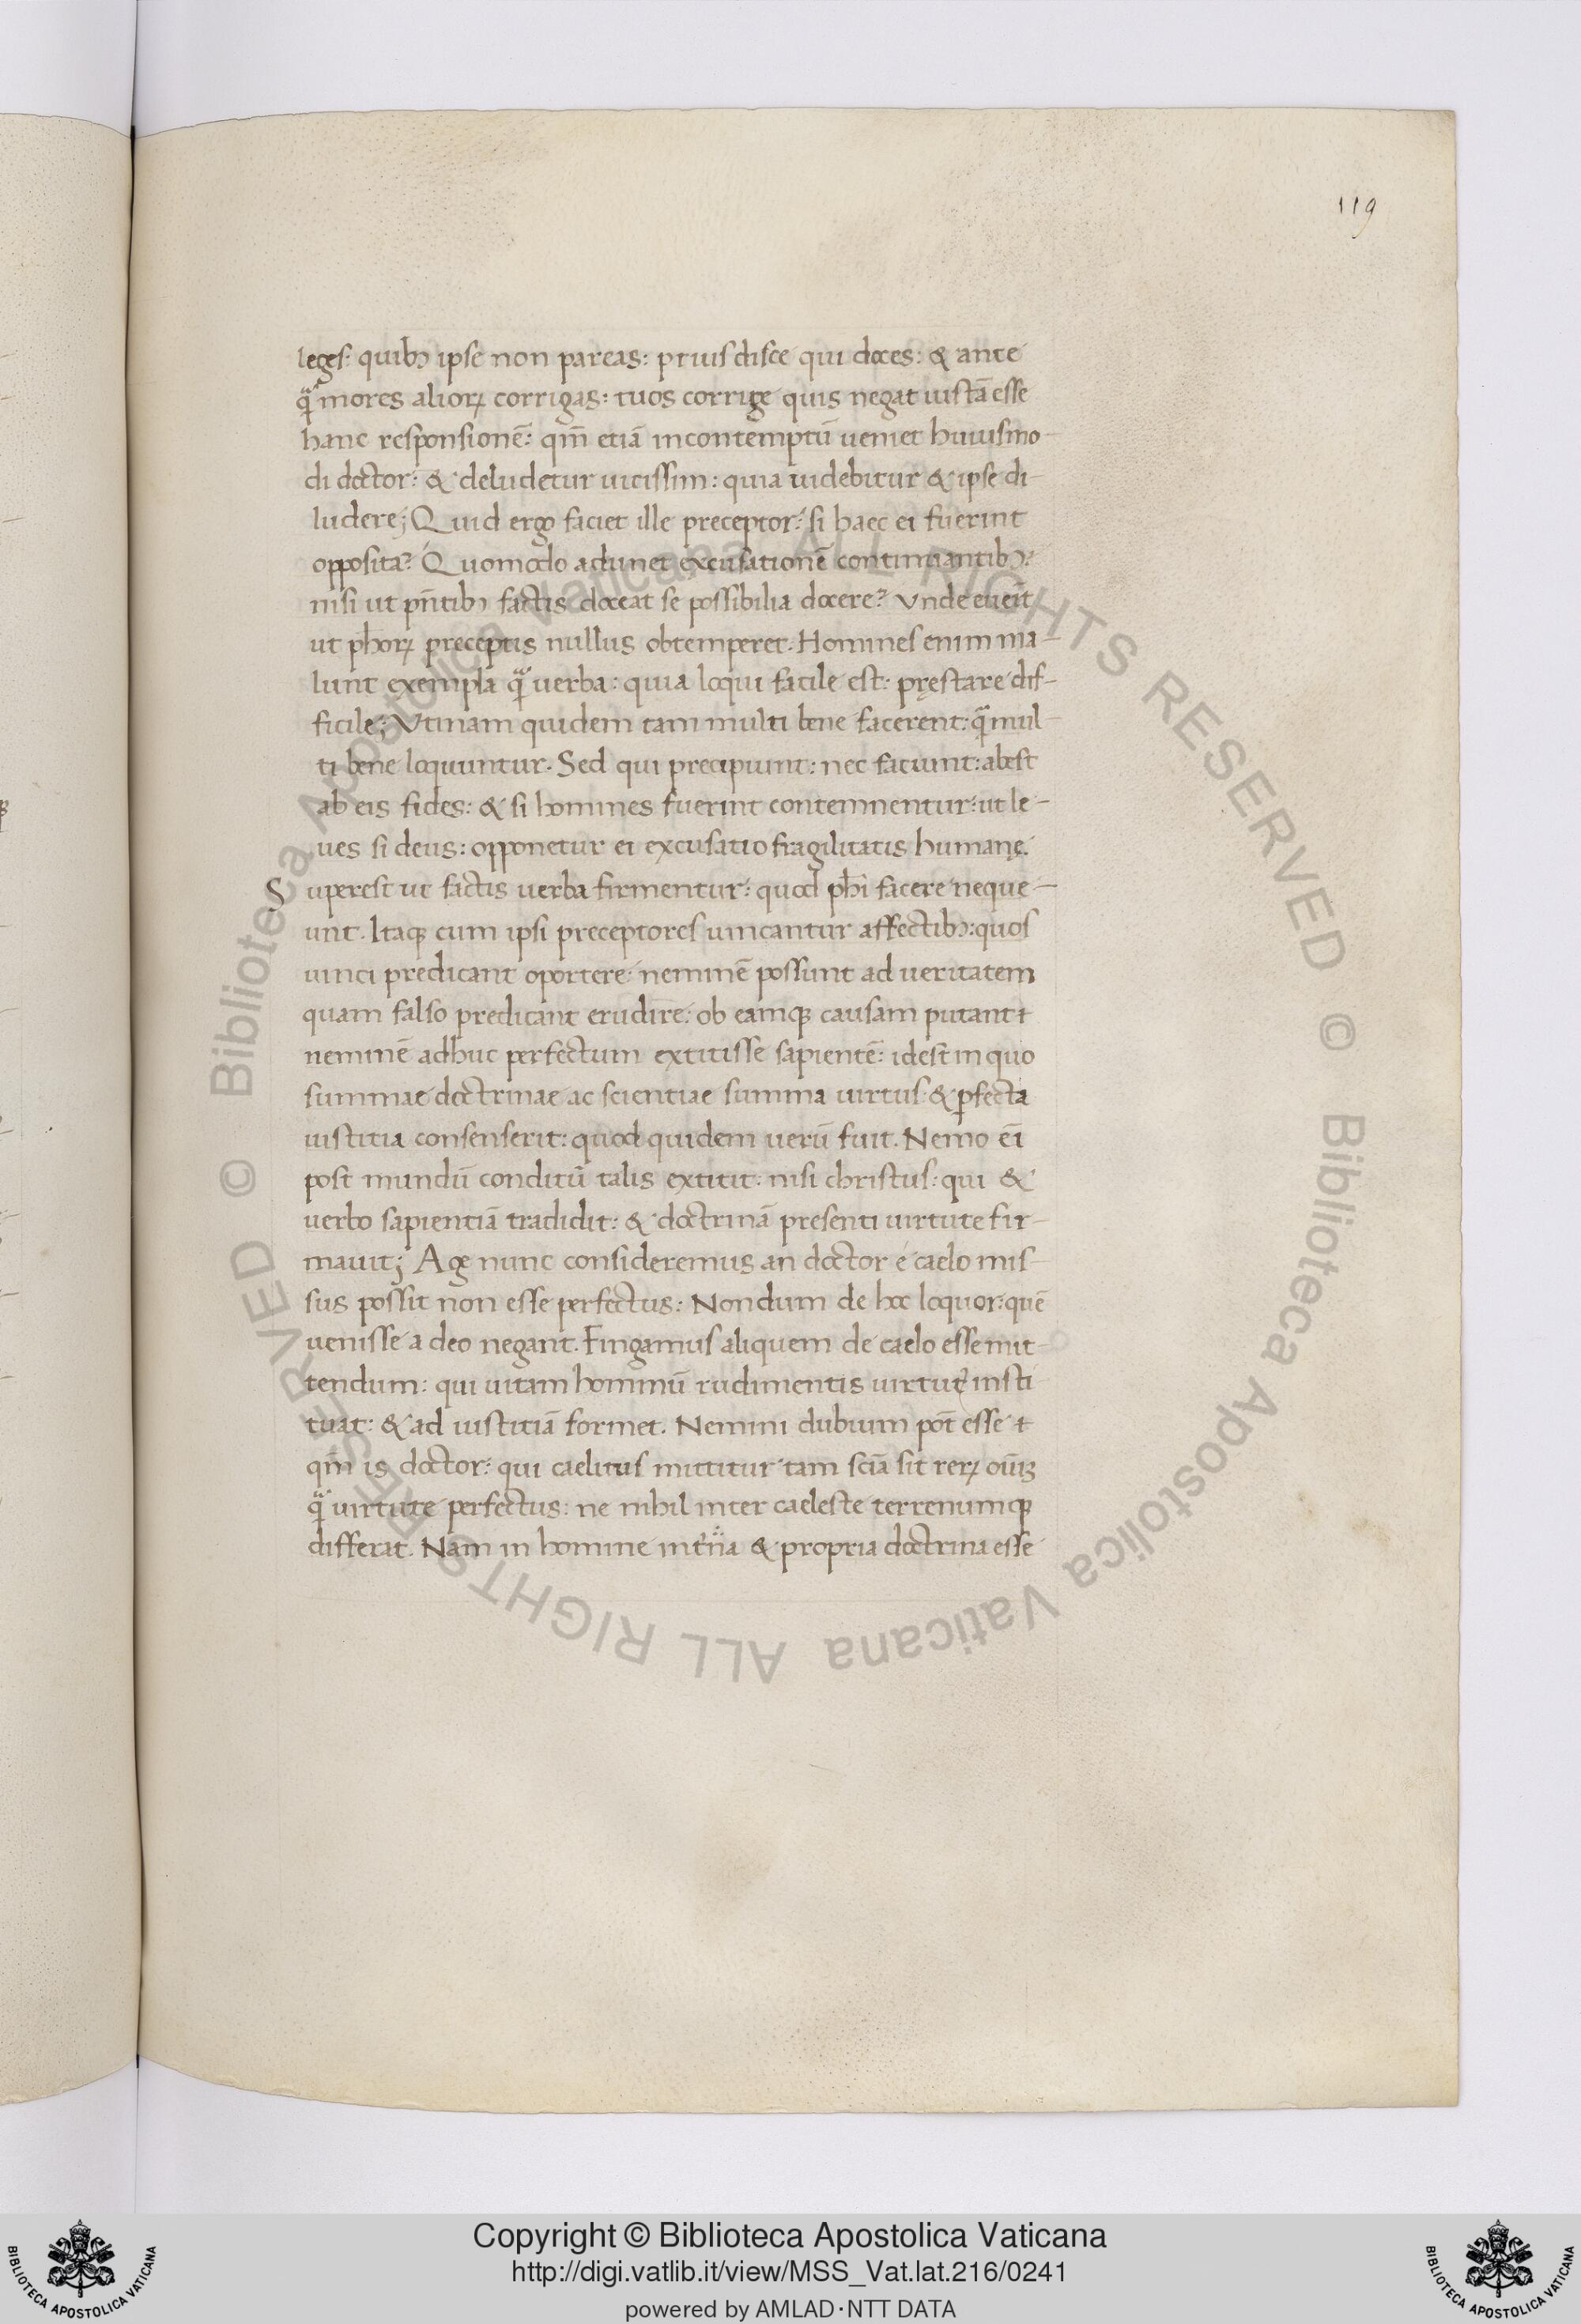 119
leges: quibꝫ ipse non pareas: prius disce qui doces: & ante
qᷓ mores aliorꝝ corrigas: tuos corrige quis negat iustā esse
hanc responsionē: qm̄ etiā incontemptū ueniet huiusmo-
di doctor: & deludetur uicissim: quia uidebitur & ipse di-
ludere; Quid ergo faciet ille preceptor: si haec ei fuerint
opposita? Quomodo adimet excusationē contumacibꝫ:
nisi ut pn̄tibꝫ factis doceat se possibilia docere? Vnde eueīt
ut ph̄orꝝ preceptis nullus obtemperet. Homines enim ma-
lunt exempla qᷓ uerba: quia loqui facile est: pręstare dif-
ficile; Vtinam quidem tam multi bene facerent: qᷓ mul-
ti bene loquuntur. Sed qui precipiunt: nec faciunt: abest
ab eis fides: & si homines fuerint contemnentur: ut le-
ues si deus: opponetur ei excusatio fragilitatis humanę.
Superest ut factis uerba firmentur: quod ph̄i facere neque-
unt. Itaqꝫ cum ipsi preceptores uincantur affectibꝫ: quos
uinci predicant oportere: neminē possunt ad ueritatem
quam falso predicant erudire: ob eamqꝫ causam putant
neminē adhuc perfectum extitisse sapientē: idest in quo
summae doctrinae ac scientiae summa uirtus: & ꝑfecta
iustitia consenserit: quod quidem uerū fuit. Nemo eī
post mundū conditū talis extitit: nisi christus: qui &
uerbo sapientiā tradidit: & doctrinā presenti uirtute fir-
mauit; Age nunc consideremus an doctor e caelo mis-
sus possit non esse perfectus: Nondum de hoc loquor: quē
uenisse a deo negant. Fingamus aliquem de caelo esse mit-
tendum: qui uitam hominū rudimentis uirtutꝭ insti
tuat: & ad iustitiā formet. Nemini dubium pōt esse
qm̄ is doctor: qui caelitus mittitur tam scīa sit rerꝝ oīuꝫ
qᷓ uirtute perfectus: ne nihil inter caeleste terrenumqꝫ
differat. Nam in homine int̄na & propria doctrina esse
© Biblioteca Apostolica Vaticana ALL RIGHTS RESERVED © Biblioteca Apostolica Vaticana ALL RIGHTS RESERVED
BIBLIOTECA APOSTOLICA VATICANA
Copyright © Biblioteca Apostolica Vaticana
http://digi.vatlib.it/view/MSS_Vat.lat.216/0241
powered by AMLAD·NTT DATA
BIBLIOTECA APOSTOLICA VATICANA